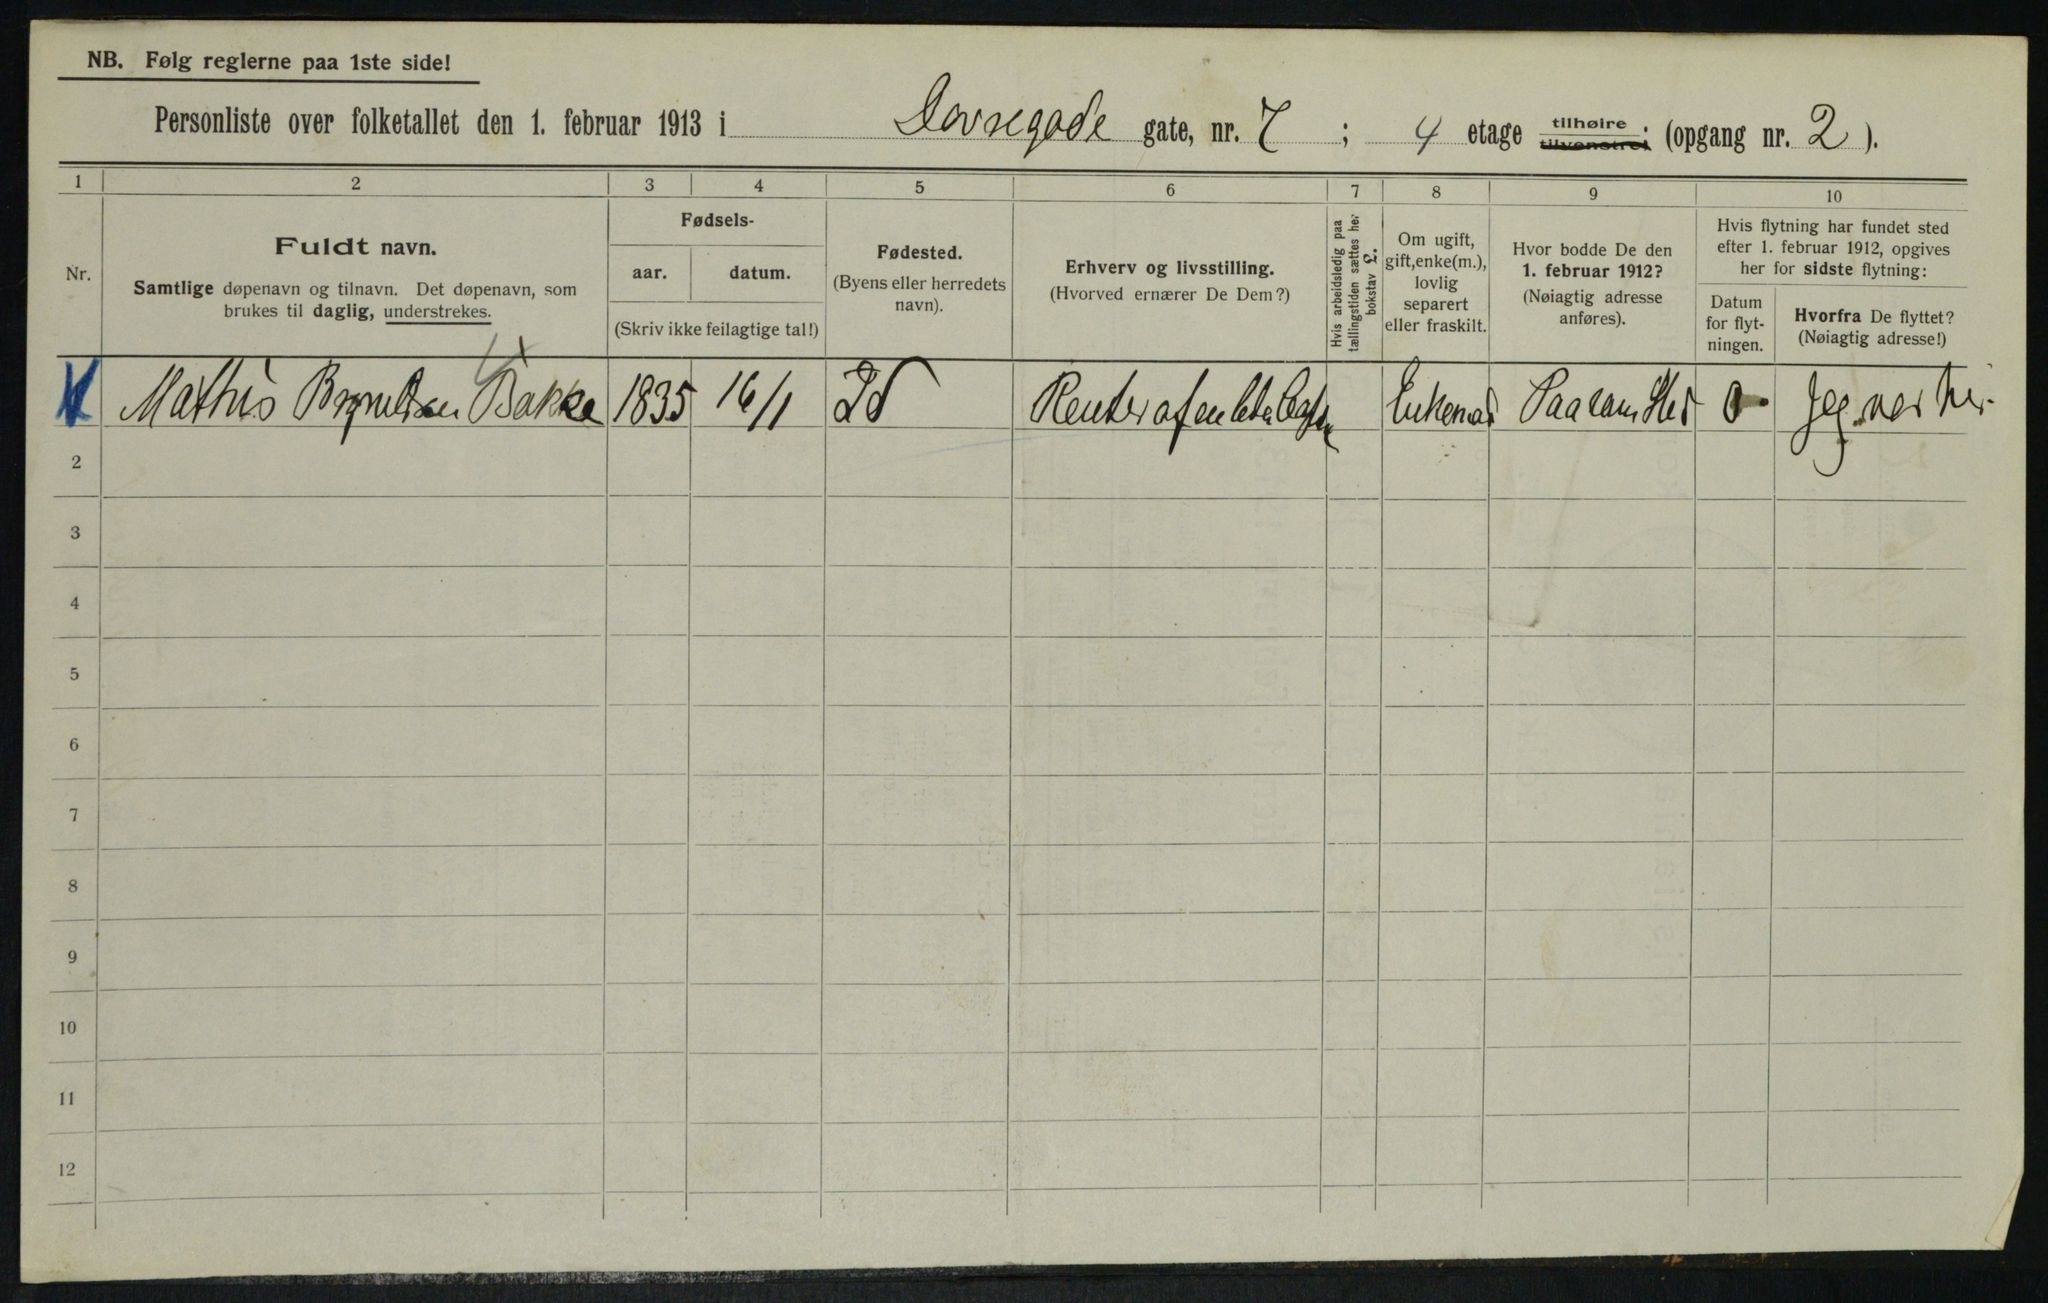 NB. Følg reglerne paa 1ste side!
Personliste over folketallet den 1. februar 1913 i Dovregade gate, nr. 7 ; 4 etage tilhøire tilvenstre; (opgang nr. 2 ).
1 2 3 4 5 6 7 8 9 10
Nr.
Fuldt navn.
Samtlige døpenavn og tilnavn. Det døpenavn, som
brukes til daglig, understrekes.
Fødsels-
aar. datum.
(Skriv ikke feilagtige tal!)
Fødested.
(Byens eller herredets
navn).
Erhverv og livsstilling.
(Hvorved ernærer De Dem?)
Hvis arbeidsledig paa
tællingstiden sættes her
bokstav L.
Om ugift,
gift, enke(m.),
lovlig
separert
eller fraskilt.
Hvor bodde De den
1. februar 1912?
(Nøiagtig adresse
anføres).
Hvis flytning har fundet sted
efter 1. februar 1912, opgives
her for sidste flytning:
Datum
for flyt-
ningen.
Hvorfra De flyttet?
(Nøiagtig adresse!)
1 Mathis Bakke 1835 16/1 Id Renter af en Enkemad Paa Sted 0 Jeg var her
2
3
4
5
6
7
8
9
10
11
12